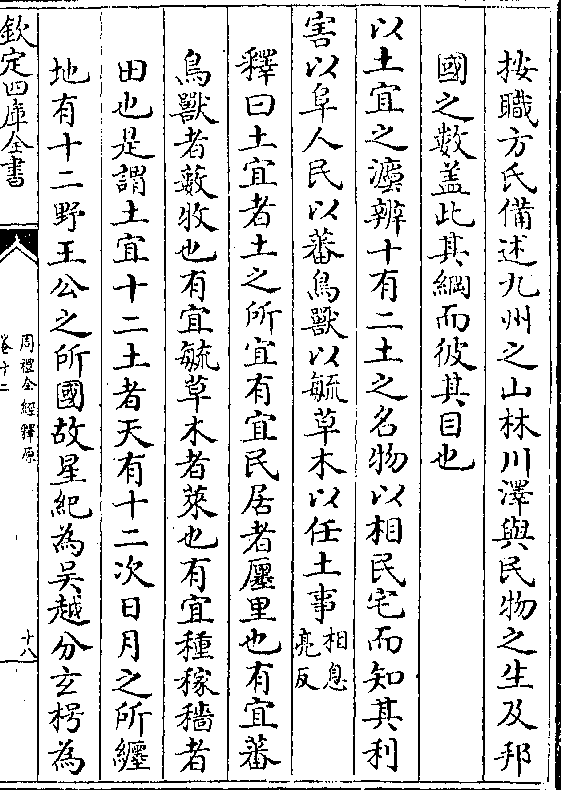 按職方氏備述九州之山林川澤與民物之生及邦
國之數蓋此其綱而彼其目也
以土宜之灋辨十有二土之名物以相民宅而知其利
害以阜人民以蕃鳥獸以毓草木以任土事相息亮反
釋曰土宜者土之所宜有宜民居者廛里也有宜蕃
鳥獸者藪牧也有宜毓草木者萊也有宜種稼穡者
田也是謂土宜十二土者天有十二次日月之所纏
地有十二野王公之所國故星紀為吳越分玄枵為
欽定四庫全書
周禮全經釋原
卷十二
十八